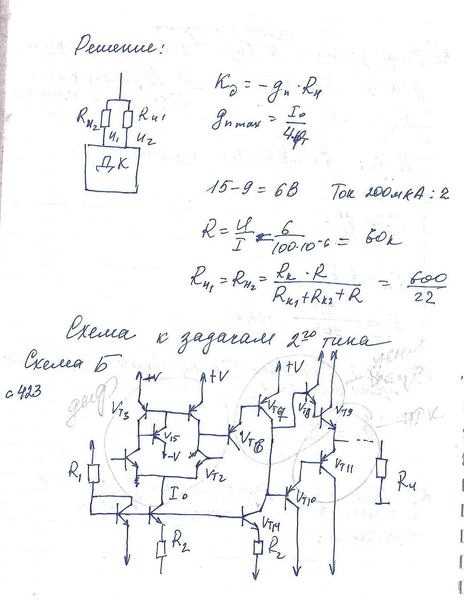 Решение:
Rн2 Rн1
u1 u2
ДК
Kд = -gп · Rн
gп max = I0 / 4φт
15-9 = 6В Ток 200мкА : 2
R = U/I = 6 / 100·10-6 = 60к
Rн1 = Rн2 = Rк · R / Rк1 + Rк2 + R = 600 / 22
Схема к задачам 2го типа
Схема Б
с 423
+V +V +V
VT3 VT5 -V VT2 VT6 VT7 VT8 VT9
диф
R1 I0 R2 VT14 R2 VT10 VT11 Rн